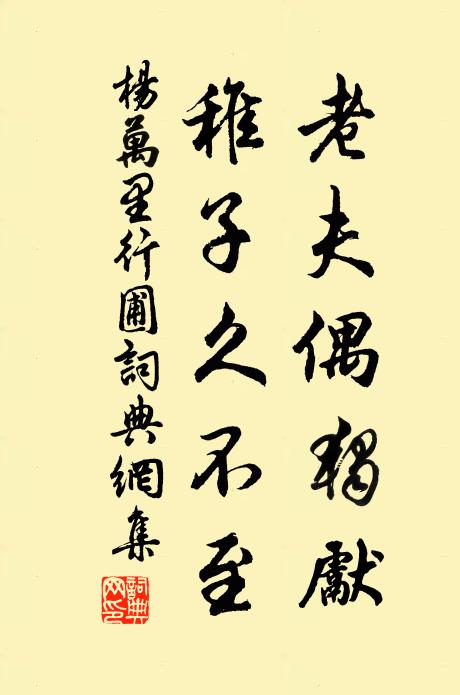 老夫偶獨獻
稚子久不至
楊萬里行圃詞典網集
詞典
网印